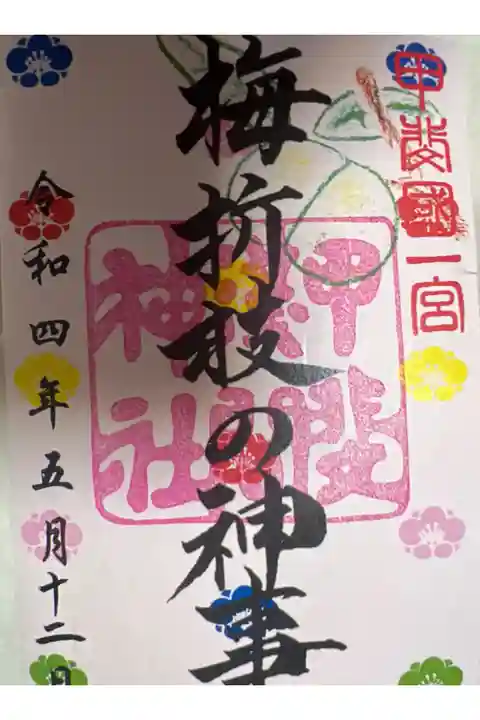 甲斐國一宮
梅折枝の神事
甲斐
淺間
神社
令和四年五月十二日